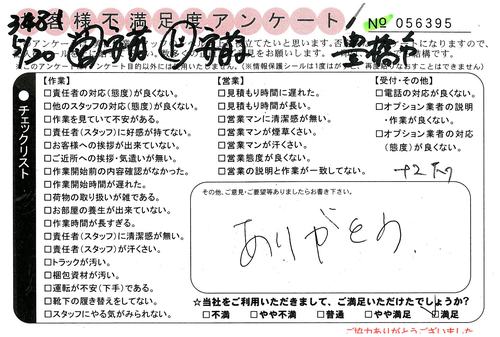 お客様不満足度アンケート
No 056395
【作業】
□責任者の対応(態度)が良くない。
□他のスタッフの対応(態度)が良くない。
□作業を見ていて不安がある。
□責任者(スタッフ)に好感が持てない。
□お客様への挨拶が出来ていない。
□ご近所への挨拶・気遣いが無い。
□作業開始前の内容確認がなかった。
□作業開始時間が遅れた。
□荷物の取り扱いが雑である。
□お部屋の養生が出来ていない。
□作業時間が長すぎる。
□責任者(スタッフ)に清潔感が無い。
□責任者(スタッフ)が汗くさい。
□トラックが汚い。
□梱包資材が汚い。
□運転が不安(下手)である。
□靴下の履き替えをしてない。
□スタッフにやる気がみられない。
【営業】
□見積もり時間に遅れた。
□見積もり時間が長い。
□営業マンに清潔感が無い。
□営業マンが煙草くさい。
□営業マンが汗くさい。
□営業態度が良くない。
□営業の説明と作業が一致してない。
【受付・その他】
□電話の対応が良くない。
□オプション業者の説明
・作業が良くない。
□オプション業者の対応
(態度)が良くない。
チェックリスト
その他、ご意見・ご要望等ありましたらお書き下さい。
ありがとう
☆当社をご利用いただきまして、ご満足いただけたでしょうか?
□不満 □やや不満 □普通 □やや満足 □満足
ご協力ありがとうございました